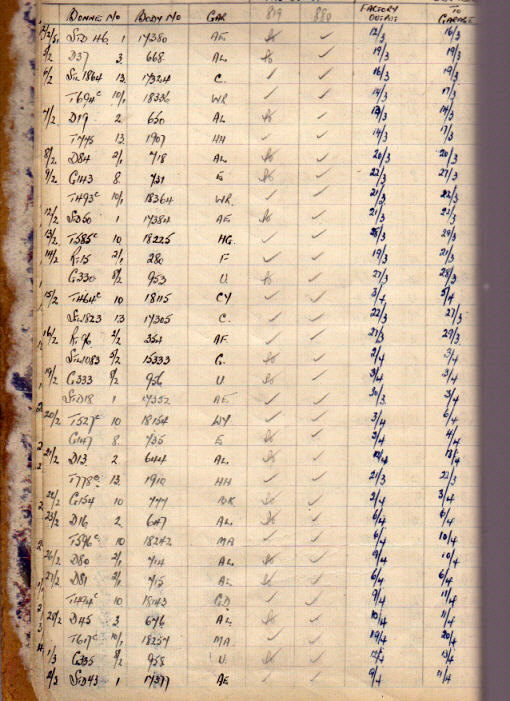 BONNET NO BODY NO GAR 819 880 FACTORY OUTPUT TO GARAGE
STD 46 1 17380 AE ✓ 12/3 16/3
5/2 D37 3 668 AL ✓ 19/3 19/3
6/2 STL 1864 13 17324 C. ✓ ✓ 16/3 19/3
T694c 10/1 18336 WR ✓ ✓ 14/3 17/3
7/2 D19 2 650 AL ✓ 13/3 14/3
T775 13 1907 HH ✓ ✓ 14/3 17/3
8/2 D84 2/1 718 AL ✓ 20/3 20/3
9/2 G143 8 731 E ✓ 22/3 27/3
T493c 10/1 18364 WR ✓ ✓ 21/3 22/3
12/2 STD50 1 17384 AE ✓ 21/3 22/3
13/2 T585c 10 18225 HG ✓ ✓ 28/3 29/3
14/2 R.15 2/1 280 F ✓ ✓ 19/3 21/3
G330 8/2 953 U ✓ 27/3 28/3
15/2 T464c 10 18115 CY ✓ ✓ 3/4 5/4
STL 1823 13 17305 C. ✓ ✓ 22/3 27/3
16/2 R.96 2/2 354 AF ✓ ✓ 27/3 29/3
STL 1083 5/2 15333 G. ✓ 2/4 3/4
19/2 G333 8/2 956 U ✓ 3/4 3/4
STD18 1 17352 AE ✓ ✓ 30/3 3/4
20/2 T527c 10 18154 WY ✓ ✓ 3/4 6/4
G147 8 735 E ✓ 3/4 4/4
21/2 D13 2 644 AL ✓ 12/4 13/4
T778c 13 1910 HH ✓ ✓ 21/3 22/3
22/2 G154 10 744 ✓ 2/4 3/4
23/2 D16 2 647 AL ✓ 6/4 6/4
T596c 10 18242 MA ✓ ✓ 6/4 10/4
26/2 D80 2/1 714 AL ✓ 9/4 10/4
27/2 D81 2/1 715 AL ✓ 6/4 6/4
T494c 10 18143 GD ✓ ✓ 9/4 11/4
28/2 D45 3 676 AL ✓ 10/4 11/4
T617c 10/1 18257 MA ✓ ✓ 19/4 20/4
1/3 G335 8/2 958 U ✓ 12/4 13/4
2/3 STD43 1 17377 AE ✓ ✓ 9/4 11/4